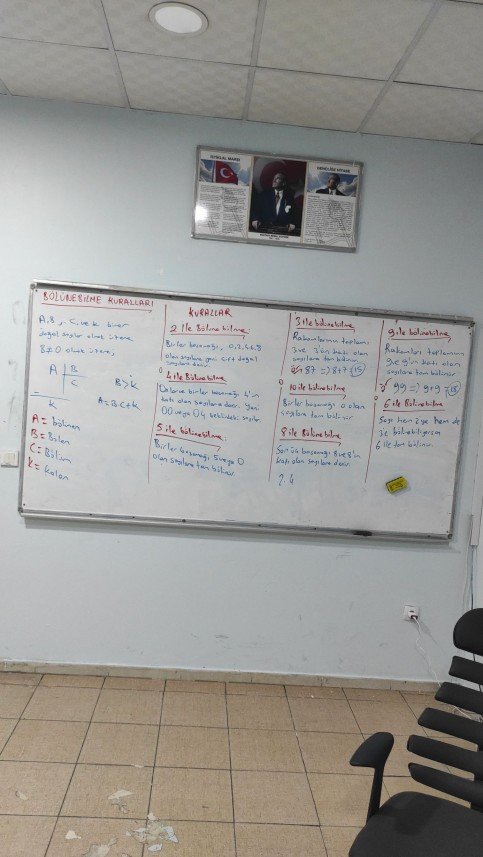 İSTİKLAL MARŞI
GENÇLİĞE HİTABE
BÖLÜNEBİLME KURALLARI
A, B, C, ve k birer
doğal sayılar olmak üzere
B≠0 olmak üzere;
A B
C
k
B>k
A=B.C+k
A = bölünen
B = Bölen
C = Bölüm
k = kalan
KURALLAR
2 ile Bölünebilme;
Birler basamağı, 0,2,4,6,8
olan sayılara yani çift doğal
sayılara denir.
4 ile Bölünebilme;
Onlar ve birler basamağı 4'ün
katı olan sayılara denir. Yani
00 veya 04 şeklindeki sayılar.
5 ile bölünebilme;
Birler basamağı 5 veya 0
olan sayılara tam bölünür.
3 ile bölünebilme;
Rakamlarının toplamı
3 ve 3'ün katı olan
sayılara tam bölünür.
87 => 8+7=15
10 ile bölünebilme;
Birler basamağı 0 olan
sayılara tam bölünür.
8 ile Bölünebilme;
Son üç basamağı 8 ve 8'in
katı olan sayılara denir.
2.4
9 ile bölünebilme;
Rakamları toplamının
9 ve 9'un katı olan
sayılara tam bölünür
99 => 9+9=18
6 ile Bölünebilme
Sayı hem 2'ye hem de
3'e bölünebiliyorsa
6 ile tam bölünür.